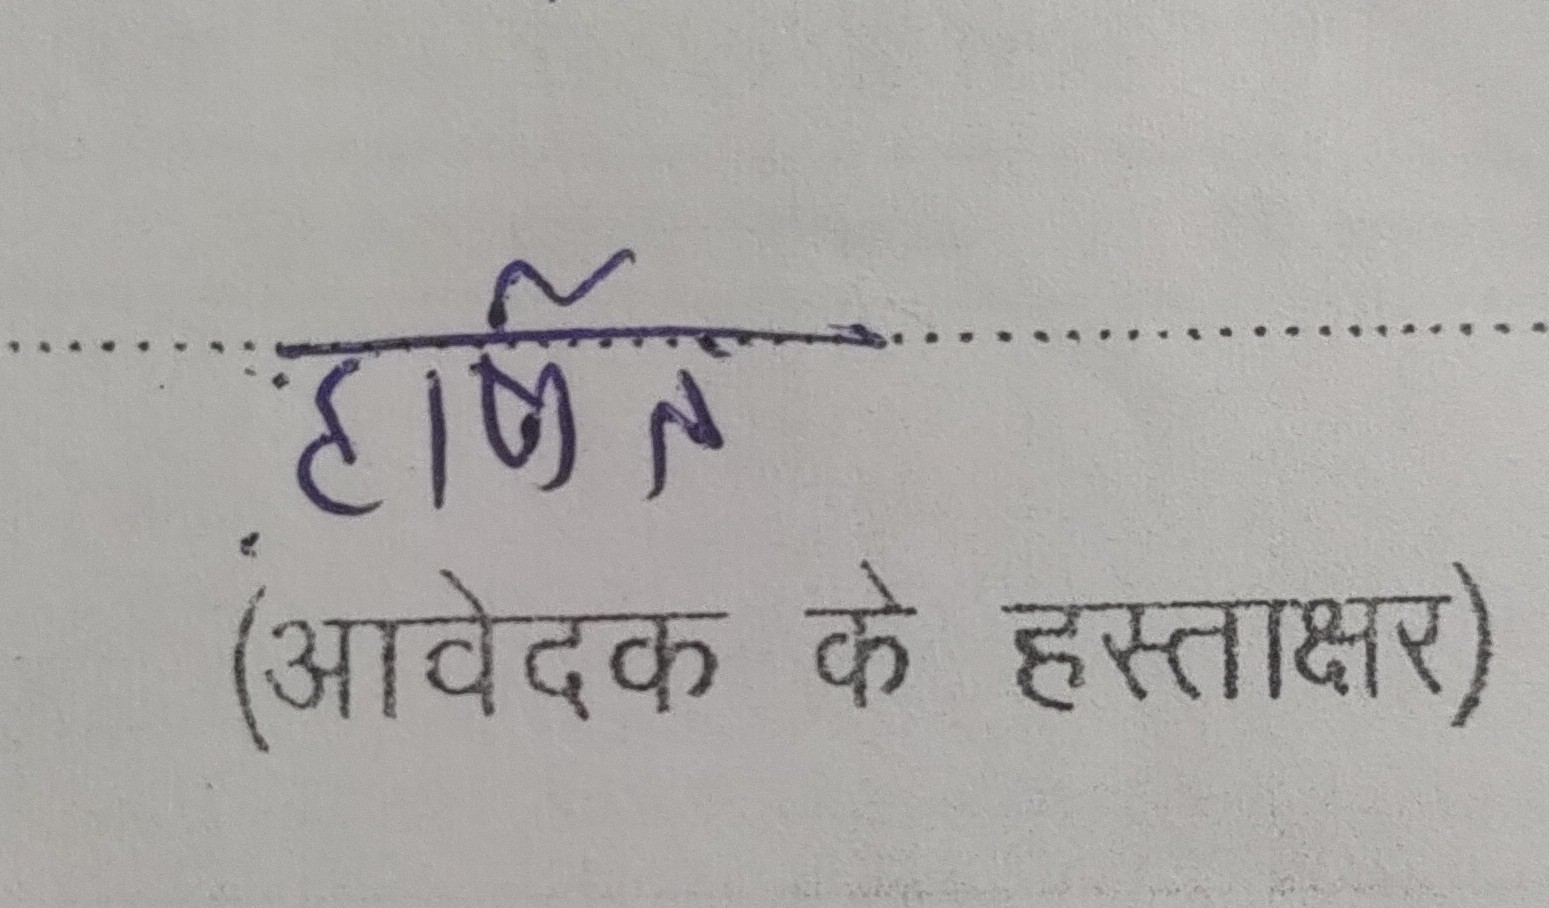 हर्षित
(आवेदक के हस्ताक्षर)